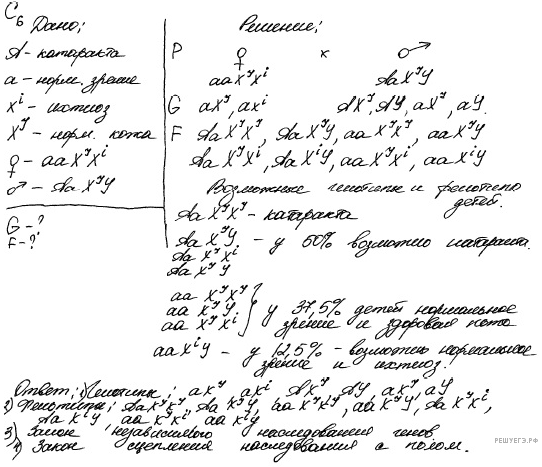 С6 Дано:
A - катаракта
a - норм. зрение
X^i - ихтиоз
X^У - норм. кожа
♀ - aa X^У X^i
♂ - Aa X^У У
G - ?
F - ?
Решение:
P ♀ × ♂
aa X^У X^i Aa X^У У
G aX^У, aX^i AX^У, AУ, aX^У, aУ.
F Aa X^У X^У, Aa X^У У, aa X^У X^У, aa X^У У
Aa X^У X^i, Aa X^i У, aa X^У X^i, aa X^i У
Возможные генотипы и фенотипы
детей.
Aa X^У X^У - катаракта
Aa X^У У - у 50% возможно катаракта.
Aa X^У X^i
Aa X^У У
aa X^У X^У
aa X^У У } у 37,5% детей нормальное
aa X^У X^i зрение и здоровая кожа
aa X^i У - у 12,5% - возможно нормальное
зрение и ихтиоз.
Ответ: 1) Генотипы: aX^У aX^i AX^У, AУ, aX^У, aУ
2) Фенотипы: Aa X^У X^У, Aa X^У У, aa X^У X^У, aa X^У У, Aa X^У X^i,
Aa X^i У, aa X^У X^i, aa X^i У
3) Закон независимого наследования генов
4) Закон сцепления наследования с полом.
РЕШУЕГЭ.РФ